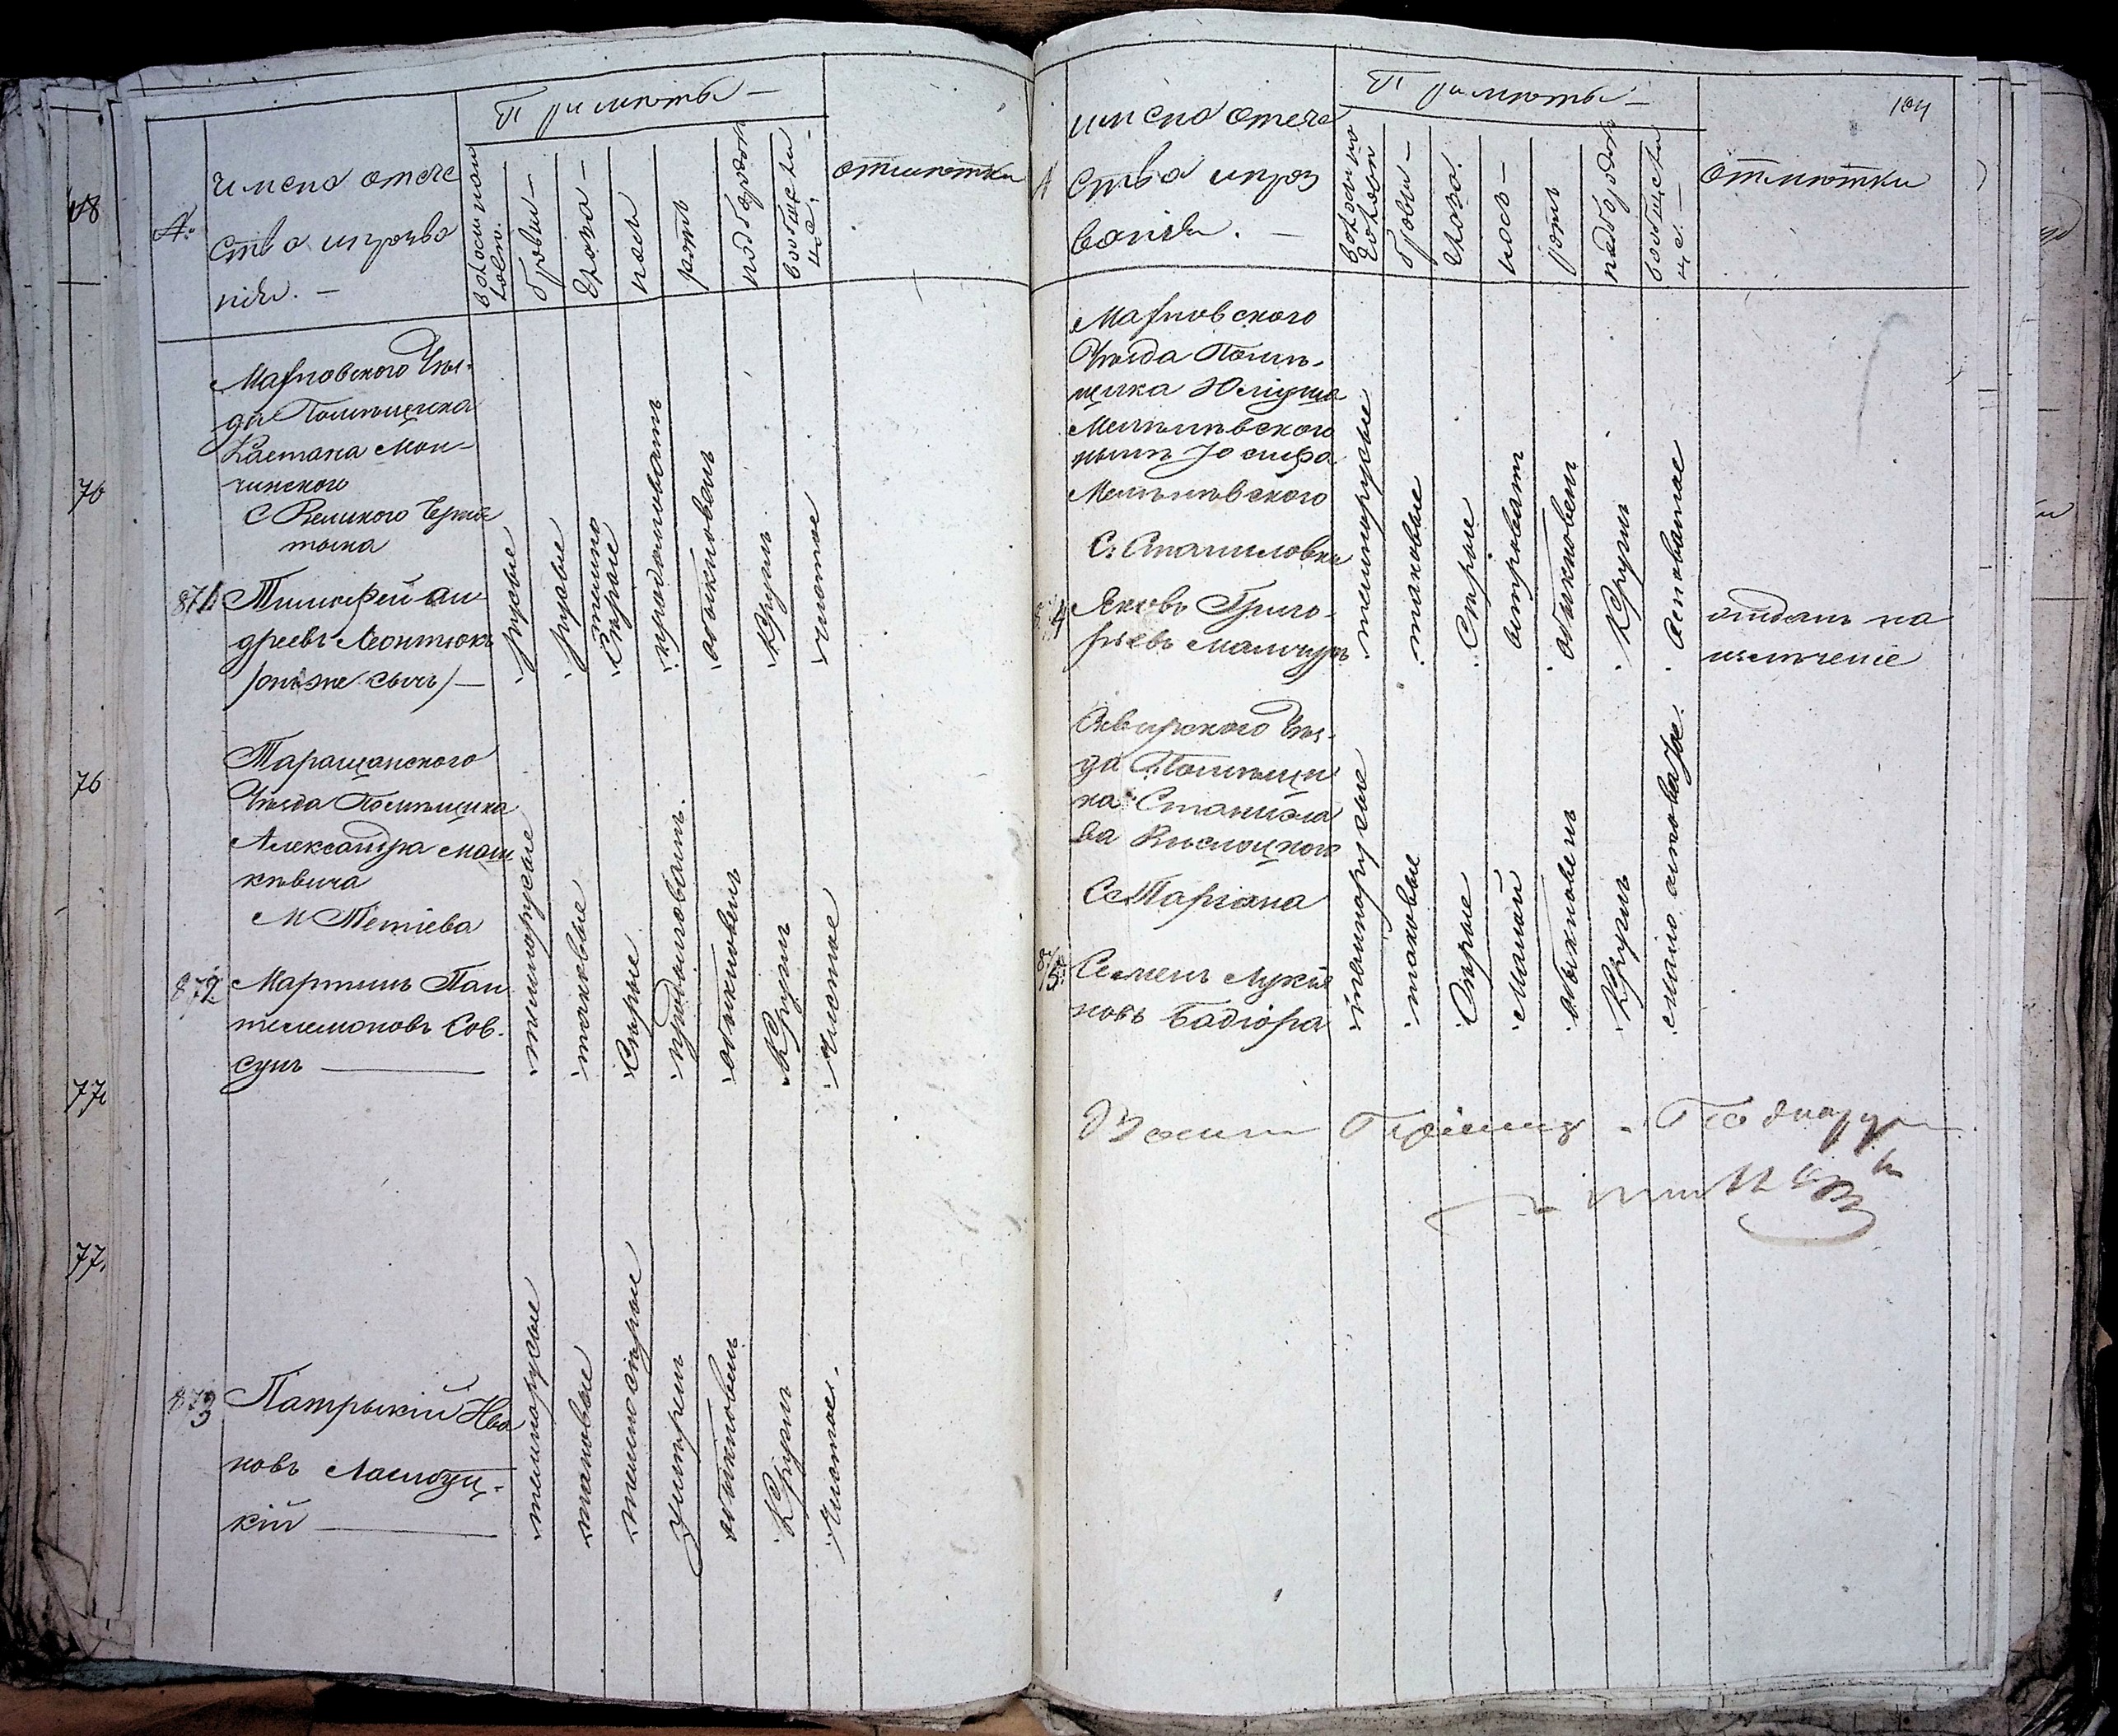 48
76
76
77
77.
Примѣты —
№.
имена отече
ства ипрозва
нія. —
волоси на
голов.
брови —
глаза —
носъ
ротъ
подбородок
вообще ли
це.
отмѣтки
Уѣз-
да Помѣщика
Каетана Мон-
чинского
С Великого Черня
тына
871 Тимофей Ан
дреевъ Леонтюкъ
/онъже Сычъ/ —
русые
русые
темно
Сѣрые
продолговатъ
обыкновенъ
Круглъ
чистое
Таращанского
Уѣзда Помѣщика
Александра
М Тетіева
872 Мартинъ Пан
телемоновъ Сов-
сунъ
темнорусые
таковые
Сѣрые
продолговатъ.
обыкновенъ
Круглъ
Чистое
873 Патрыкій Ива
новъ
кій
темнорусые
таковые
темносѣрые
умѣренъ
обыкновенъ
Круглъ
Чистое.
104
Примѣты —
№
имена отече
ства ипроз
ванія. —
волоси на
голове
брови —
глаза.
носъ —
ротъ
подбородок
вообще ли
це. —
отмѣтки
Уѣзда Помѣ-
щика Юліуша
нынѣ Іосифа
С. Станиловки
874 Яковъ Григо-
рьевъ
темнорусые
таковые
Сѣрые
островат
обыкновенъ
Круглъ
Осповатое
отданъ на
излеченіе
Сквирского Уѣз-
да Помѣщи
ка Станисла
ва
875. Семенъ Лукія
новъ Бадіора
темнорусые
таковые
Сѣрые
Малый
обыкновенъ
Круглъ
мало осповатое.